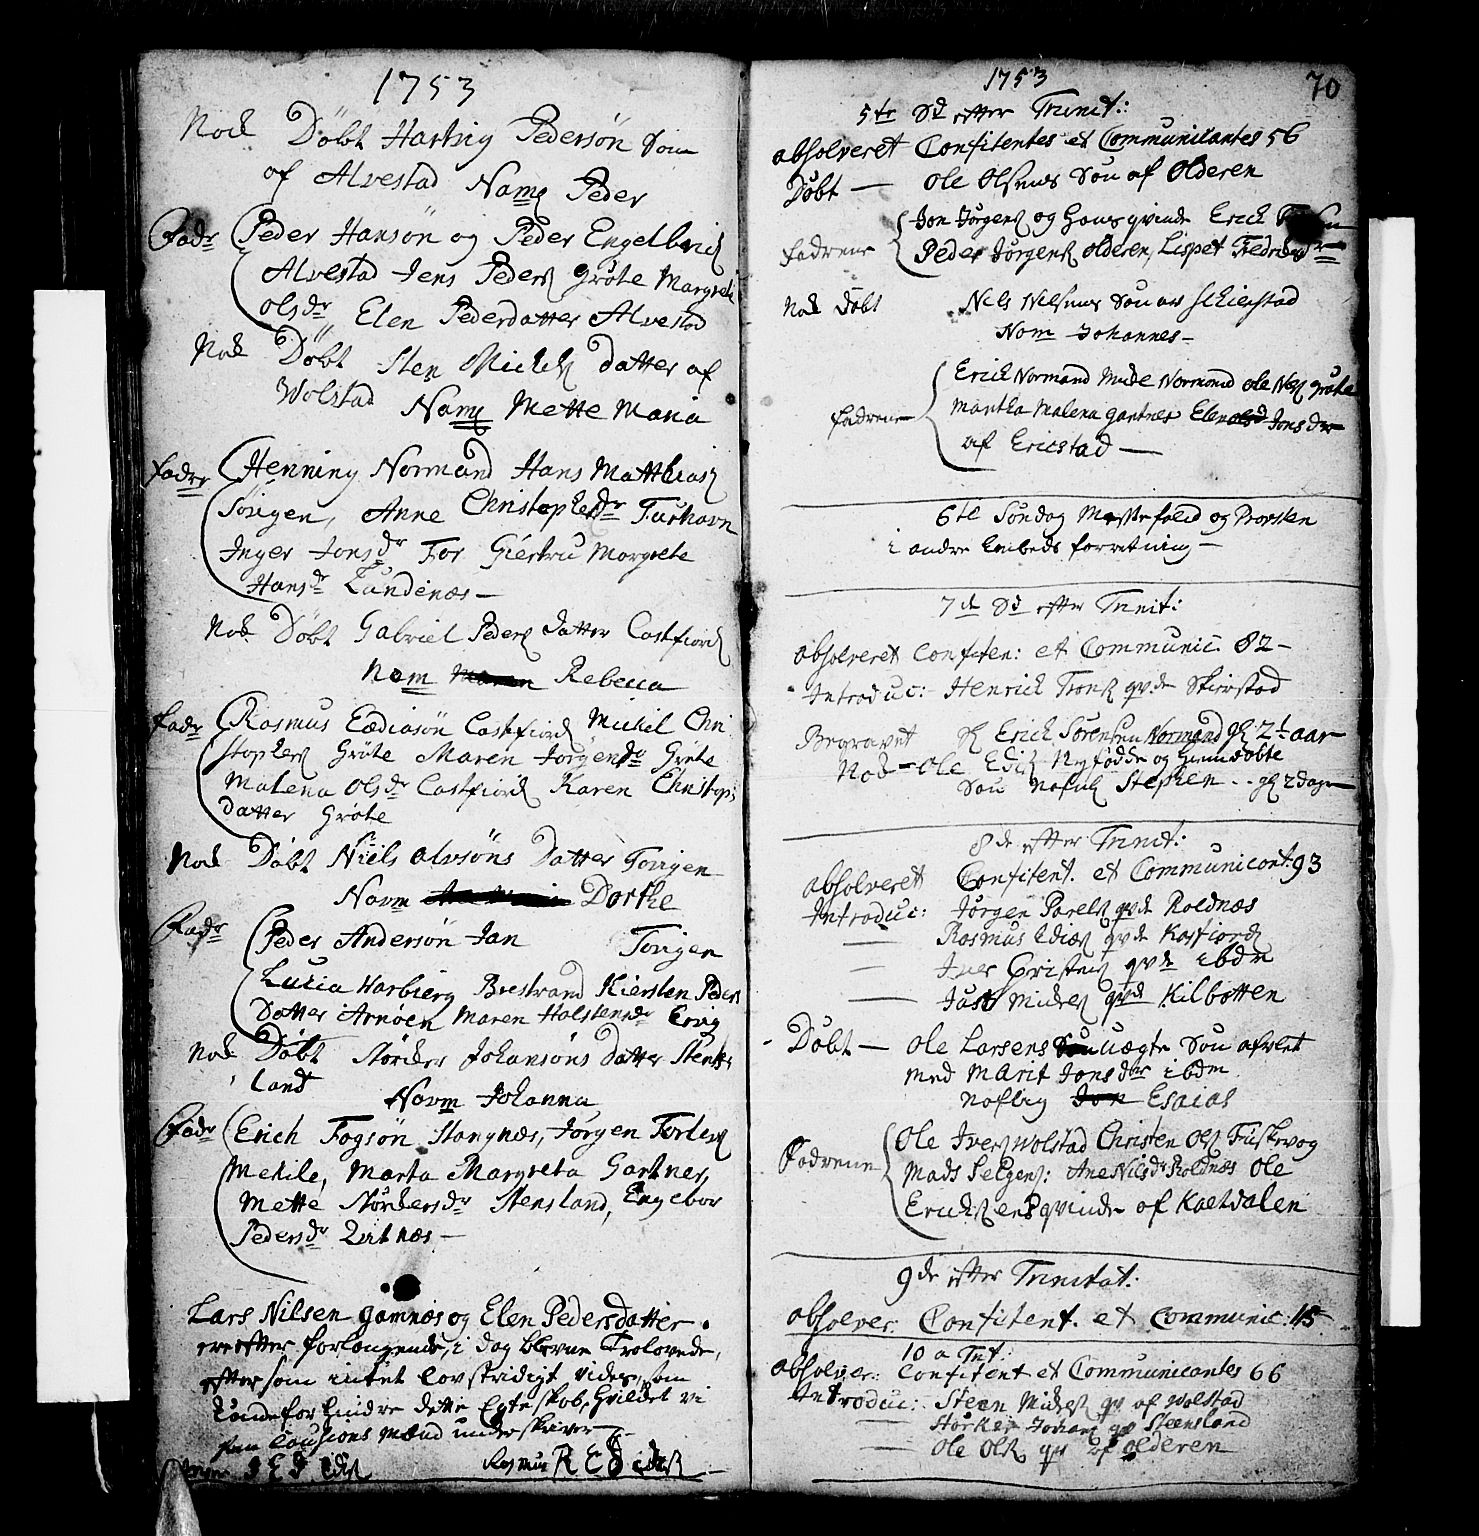 1753
Nok Döbt Hartvig Pedersön Sön
af Alvestad Namẽ Peder
Fadr Peder Hansön og Peder Engelbrich
Alvestad Jens Peders Gröte Margrete
olsdr Elen Pedersdatter Alvestad
Nok Döbt Sten Michels datter af
Wolstad Namẽ Mette Maria
Fadrr Henning Normand Hans Matthias
Torigen, Anne Christophersdr Fushavn
Inger Jonsdr For Giertru Margrete
Hansdr Lundenæs —
Nok Döbt Gabriel Peders datter Castfiord
Nom Maren Rebecca
Fadr Rasmus Ediasön Castfiord Michel Chri
stophers Gröte Maren Jörgensdr Gröte
Malena Olsdr Castfiord Karen Christoph
datter Gröte
Nok Döbt Niels olvsöns Datter Torigen
Navm Dorthe
Fadr Peder Andersön Jan Torigen
Lucia Harbierg Brestrand Kiersten Peders
Datter Arnöen Maren Holstensdr Ervig
Nok Döbt Störcker Johansöns datter Stens
land
Navm Johanna
Fadr Erich Fogsön Stangnæs, Jörgen
Mehile, Marta Margreta Gartner,
Mette Störkersdr Stensland, Engebor
Pedersdr Qvitnæs —
Lars Nilsen gamnæs og Elen Pedersdatter
ere efter forlangende, i dag blevne Trolovede,
efter som intet lovstridigt vides, som
kunde forhindre dette Egteskab, hvilket vi
som Cautions mænd underskriver —
Rasmus R E S
1753 70
5te Sd efter Trinit:
absolveret Confitentes et Communicantes 56
Döbt — Ole Olsens Sön af Olderen
Fadrene Jon Jörgens og hans qvinde Erich
Peder Jörgens olderen, Lispet Fredrichsdr
Nok Döbt Nels Nelsens Sön av Skierstad
Nom Johannes —
Fadrene Erich Normand Mule Normand Ole Nels gröte
Martha Malena gartner Elen olsd Jonsdr
af Ericstad —
6te Söndag Messefald og Provsten
i andre Embeds forretning —
7de Sd efter Trinit:
absolveret Confiten: et Communic 82 —
Introduc: Henrich Trons qvde Skierstad
Begravet Erich Sörensen Normand gl 2½ aar
Nok — Ole Edis Nyfödde og hiemdöbte
Sön Nafnl Stephen - - gl 2 dage
8de efter Trinit:
absolveret Confitent. et Communicant: 93
Introduc: Jörgen Parels qvde Roldnæs
— Rasmus Edies qvde Kasfiord
— Iver Christens qvde ibdm
— Just Mickels qvde Kilbotten
Döbt — Ole Larsens Sön uægte Sön aflet
med Marit Jonsdtr ibdm
nafnlig Jon Esaias
Fadrene Ole Ivers Wolstad Christen Ols Fuskevog
Mads Helgens: Ane Nilsdr Roldnæs Ole
Erichsens qvinde af Kaetdalen
9de efter Trinitat:
absolver: Confitent. et Communic: 115
10 a Tnt:
absolver: Confitent et Communicantes 66
Introduc: Steen Mickels qv af Wolstad
— Störker Johans qv Steensland
— Ole Ols qv af olderen